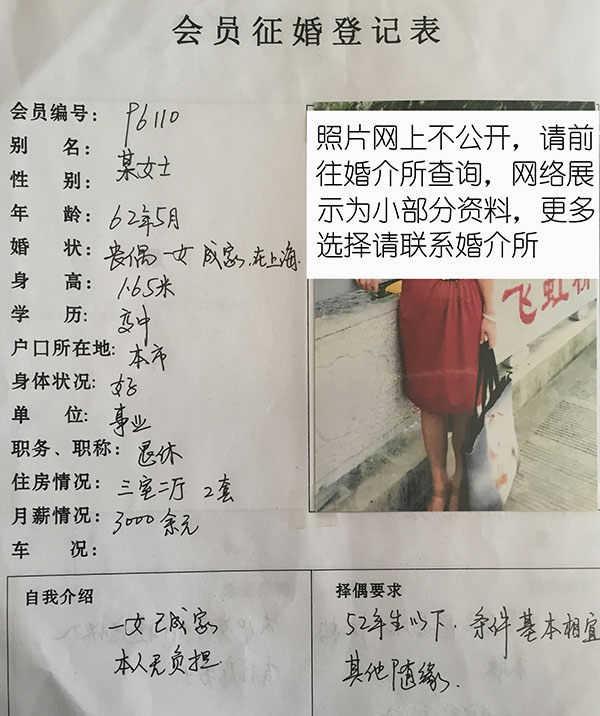 会员征婚登记表
会员编号: P6110
别 名: 某女士
性 别:
年 龄: 62年5月
婚 状: 丧偶 一女 成家.在上海.
身 高: 1.65米
学 历: 高中
户口所在地: 本市
身体状况: 好
单 位: 事业
职务、职称: 退休
住房情况: 三室二厅 2套
月薪情况: 3000余元
车 况:
照片网上不公开，请前
往婚介所查询，网络展
示为小部分资料，更多
选择请联系婚介所
飞虹桥
自我介绍
一女已成家
本人无负担.
择偶要求
52年生以下. 条件基本相宜
其他随缘.